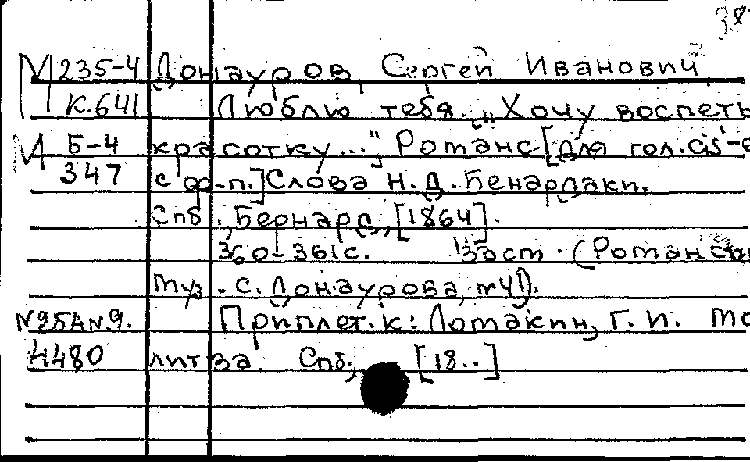 38
М 235-4 Донауров, Сергей Иванович
К.641 Люблю тебя. "Хочу воспеть
М Б-4 красотку...", Романс [для гол. cis'-e
347 с ф-п.] Слова Н. Д. Бенардаки.
Спб., Бернард, [1864].
360-361 с. (Романсы
муз. С. Донаурова, №4).
Приплет. к: Ломакин, Г. И. Мо
Н480 литва. Спб., [18..]